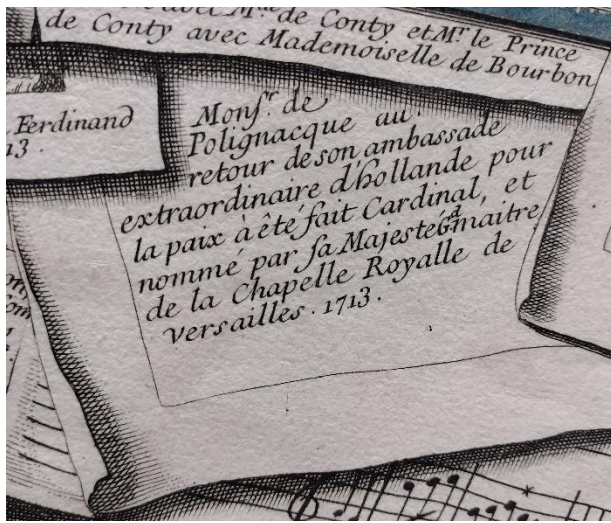 de Conty et Mr. le Prince
de Conty avec Mademoiselle de Bourbon
Ferdinand
13.
Monsr. de
Polignacque au
retour de son ambassade
extraordinaire d'hollande pour
la paix à êté fait Cardinal, et
nommé par sa Majesté Gd. maitre
de la Chapelle Royalle de
versailles. 1713.